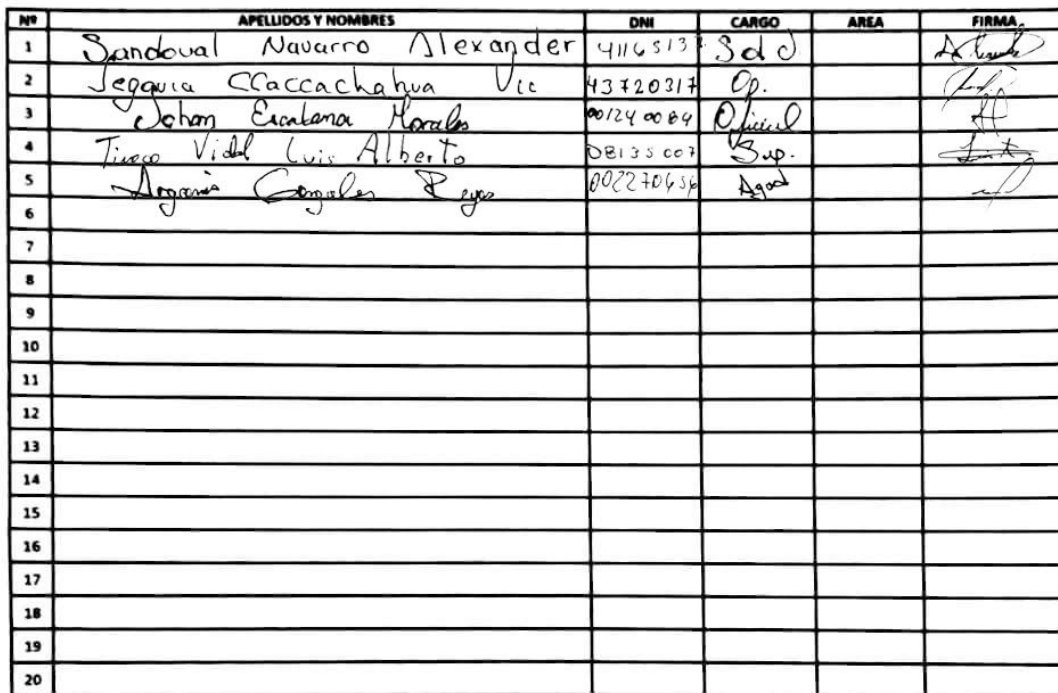 Nº APELLIDOS Y NOMBRES DNI CARGO AREA FIRMA
1 Sandoval Navarro Alexander 4116513 Sold
2 Ccaccachahua Vic 43720317 Op.
3 Johan Morales 00124 0084 Oficial
4 Vidal Luis Alberto 08135007 Sup.
5 Gonzales Reyes
6
7
8
9
10
11
12
13
14
15
16
17
18
19
20